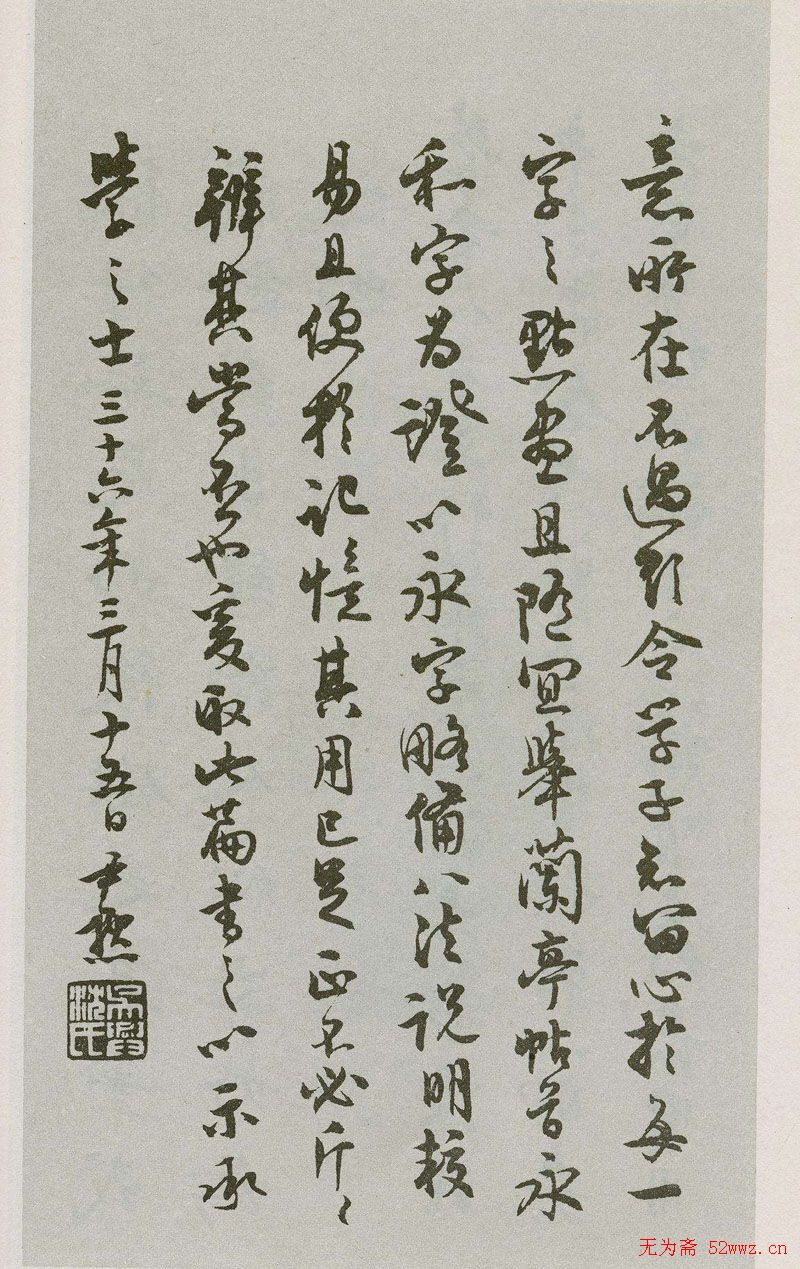 意所在不過欲令学子知留心於每一
字之點畫且隨宜舉蘭亭帖首永
和字為證以永字略備八法説明較
易且便於記憶其用已足正不必斤〻
辨其當否也爰取此篇書之以示承
學之士三十六年三月十五日尹默
吳興沈氏
无为斋 52wwz.cn